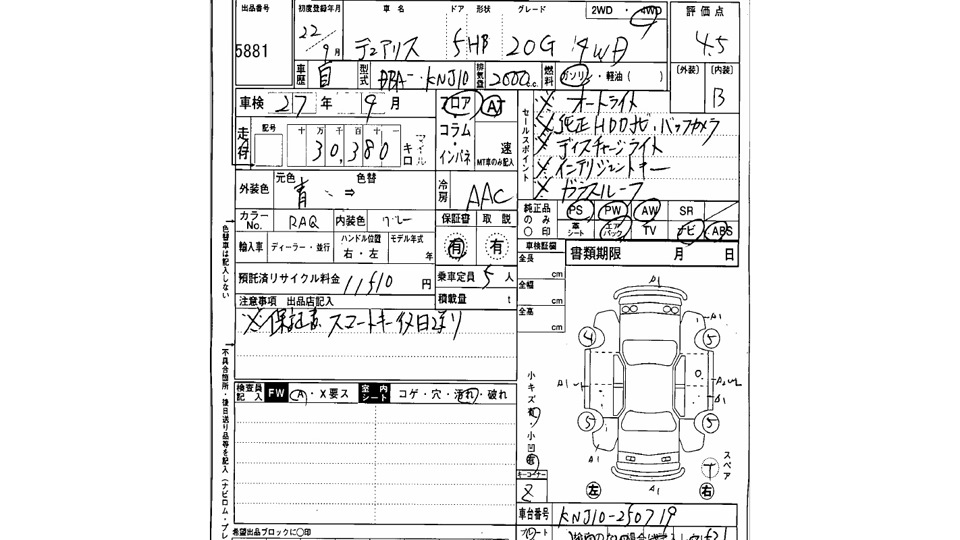 出品番号 初度登録年月 車名 ドア 形状 グレード 2WD・4WD 評価点
5881 22/9月 デュアリス 5 HB 20G 4WD 4.5
車歴 自 型式 DBA-KNJ10 排気量 2000c.c. 燃料 ガソリン・軽油( ) [外装] [内装]
B
車検 27年 9月 フロア AT
コラム・インパネ 速 MT車のみ記入
走行 記号 十万千百十一 マイル キロ
30,380
セールスポイント
※オートライト
※純正HDDナビ・バックカメラ
※ディスチャージライト
※インテリジェントキー
※ガラスルーフ
外装色 元色 色替 冷房 AAC
青 ⇒
純正品のみ〇印 PS PW AW SR
革シート エアバッグ TV ナビ ABS
カラーNo. RAQ 内装色 グレー 保証書 取説
有 有
輸入車 ディーラー・並行 ハンドル位置 右・左 モデル年式 年
車検証欄 書類期限 月 日
全長 cm
全幅 cm
全高 cm
預託済リサイクル料金 11510円 乗車定員 5人
積載量 t
注意事項 出品店記入
※保証書、スマートキー後日送り
色替車は記入しない
不具合箇所・後日送り品等を記入(ナビロム・プレ
検査員記入 FW A・X要ス 室内シート コゲ・穴・汚れ・破れ
小キズ有・小凹有
キーコーナー
Z
A1
A1
4 5
A1 A1
5 5
A1
A1
左 右
T スペア
車台番号 KNJ10-250719
希望出品ブロックに〇印